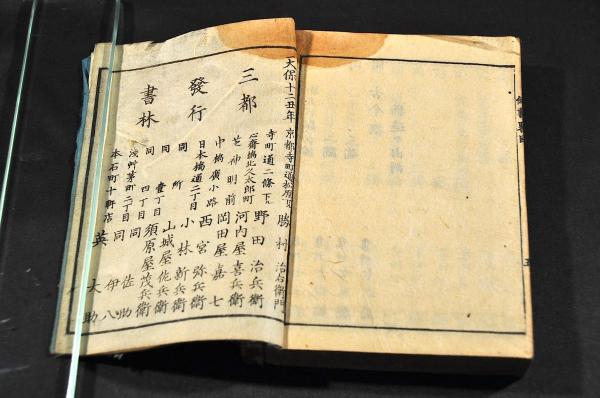 天保十二丑年
京都寺町通松原下ル 勝村治右衛門
寺町通二條下ル 野田治兵衛
心斎橋北久太郎町 河内屋喜兵衛
芝神明前 岡田屋嘉七
中橋廣小路 西宮弥兵衛
日本橋通二丁目 小林新兵衛
同所 山城屋佐兵衛
同壹丁目 須原屋茂兵衛
同四丁目 同佐助
浅艸茅町二丁目 同伊八
本石町十軒店 英大助
三都
發行
書林